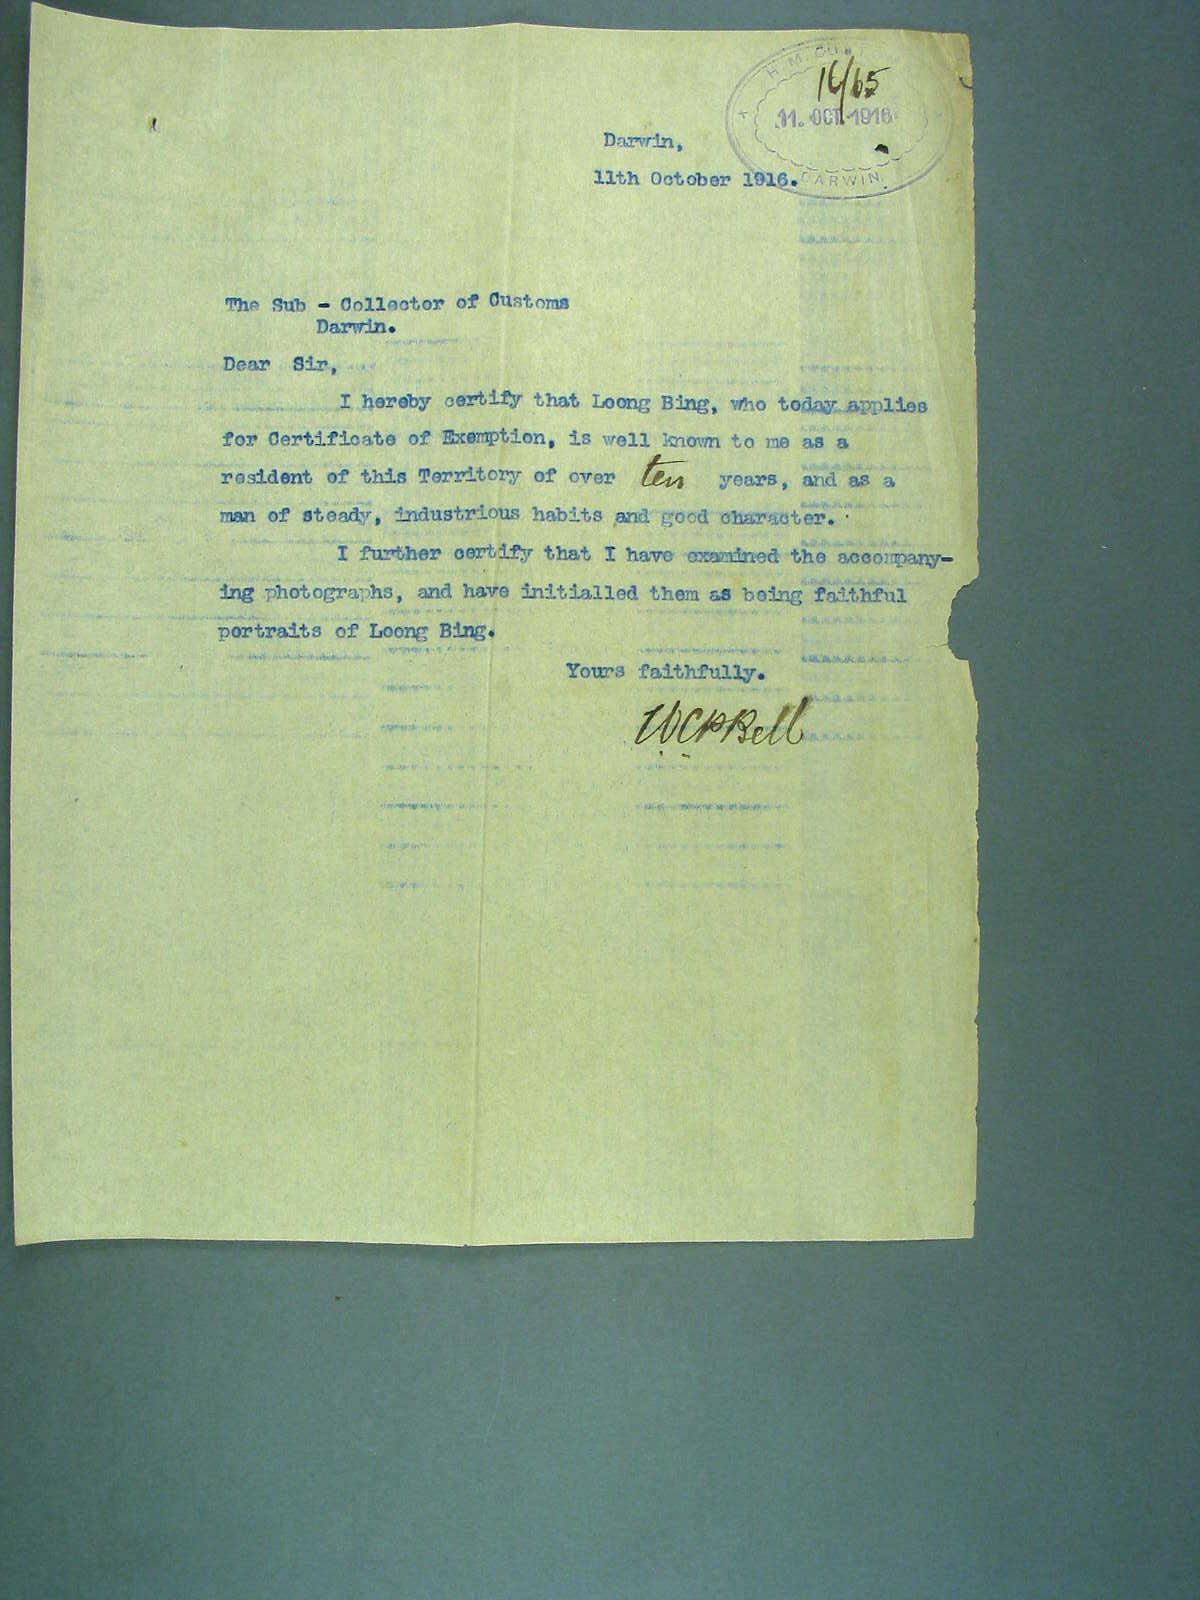 H. M. CUST
16/65
11. OCT. 1916
DARWIN.
Darwin,
11th October 1916.
The Sub - Collector of Customs
Darwin.
Dear Sir,
I hereby certify that Loong Bing, who today applies
for Certificate of Exemption, is well known to me as a
resident of this Territory of over ten years, and as a
man of steady, industrious habits and good character.
I further certify that I have examined the accompany-
ing photographs, and have initialled them as being faithful
portraits of Loong Bing.
Yours faithfully.
WCPBell